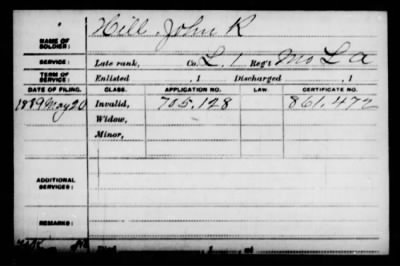 NAME OF SOLDIER: Hill, John R
SERVICE: Late rank, Co. L. 1 Reg't Mo L A
TERM OF SERVICE: Enlisted , 1 Discharged , 1
DATE OF FILING. CLASS. APPLICATION NO. LAW. CERTIFICATE NO.
1889 May 20 Invalid, 705.128 861.472
Widow,
Minor,
ADDITIONAL SERVICES:
REMARKS: